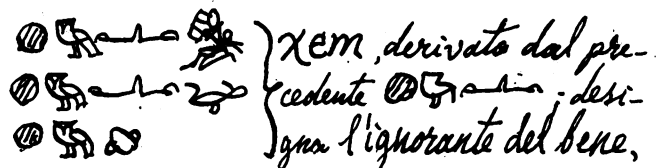 𓐍𓅓𓂜 χem, derivato dal pre-
𓐍𓅓𓂜 cedente 𓐍𓅓𓂜; desi-
𓐍𓅓 gna l'ignorante del bene,